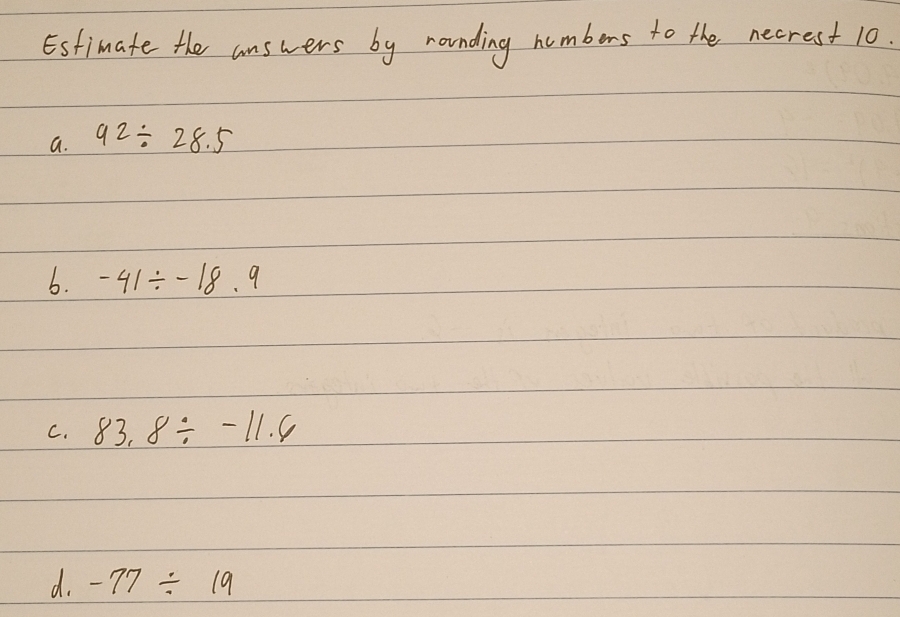 Estimate the answers by rounding numbers to the nearest 10.
a. 92 ÷ 28.5
b. -41 ÷ -18.9
c. 83.8 ÷ -11.6
d. -77 ÷ 19